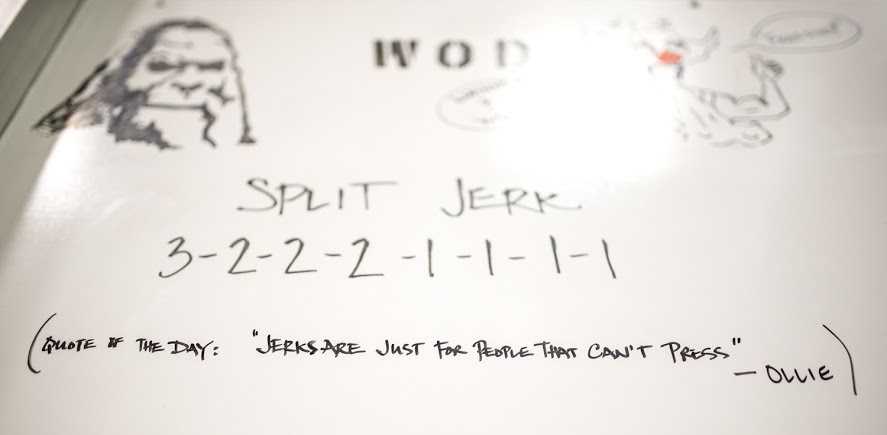 WOD
SPLIT JERK
3-2-2-2-1-1-1-1
(QUOTE OF THE DAY: "JERKS ARE JUST FOR PEOPLE THAT CAN'T PRESS"
— OLLIE)